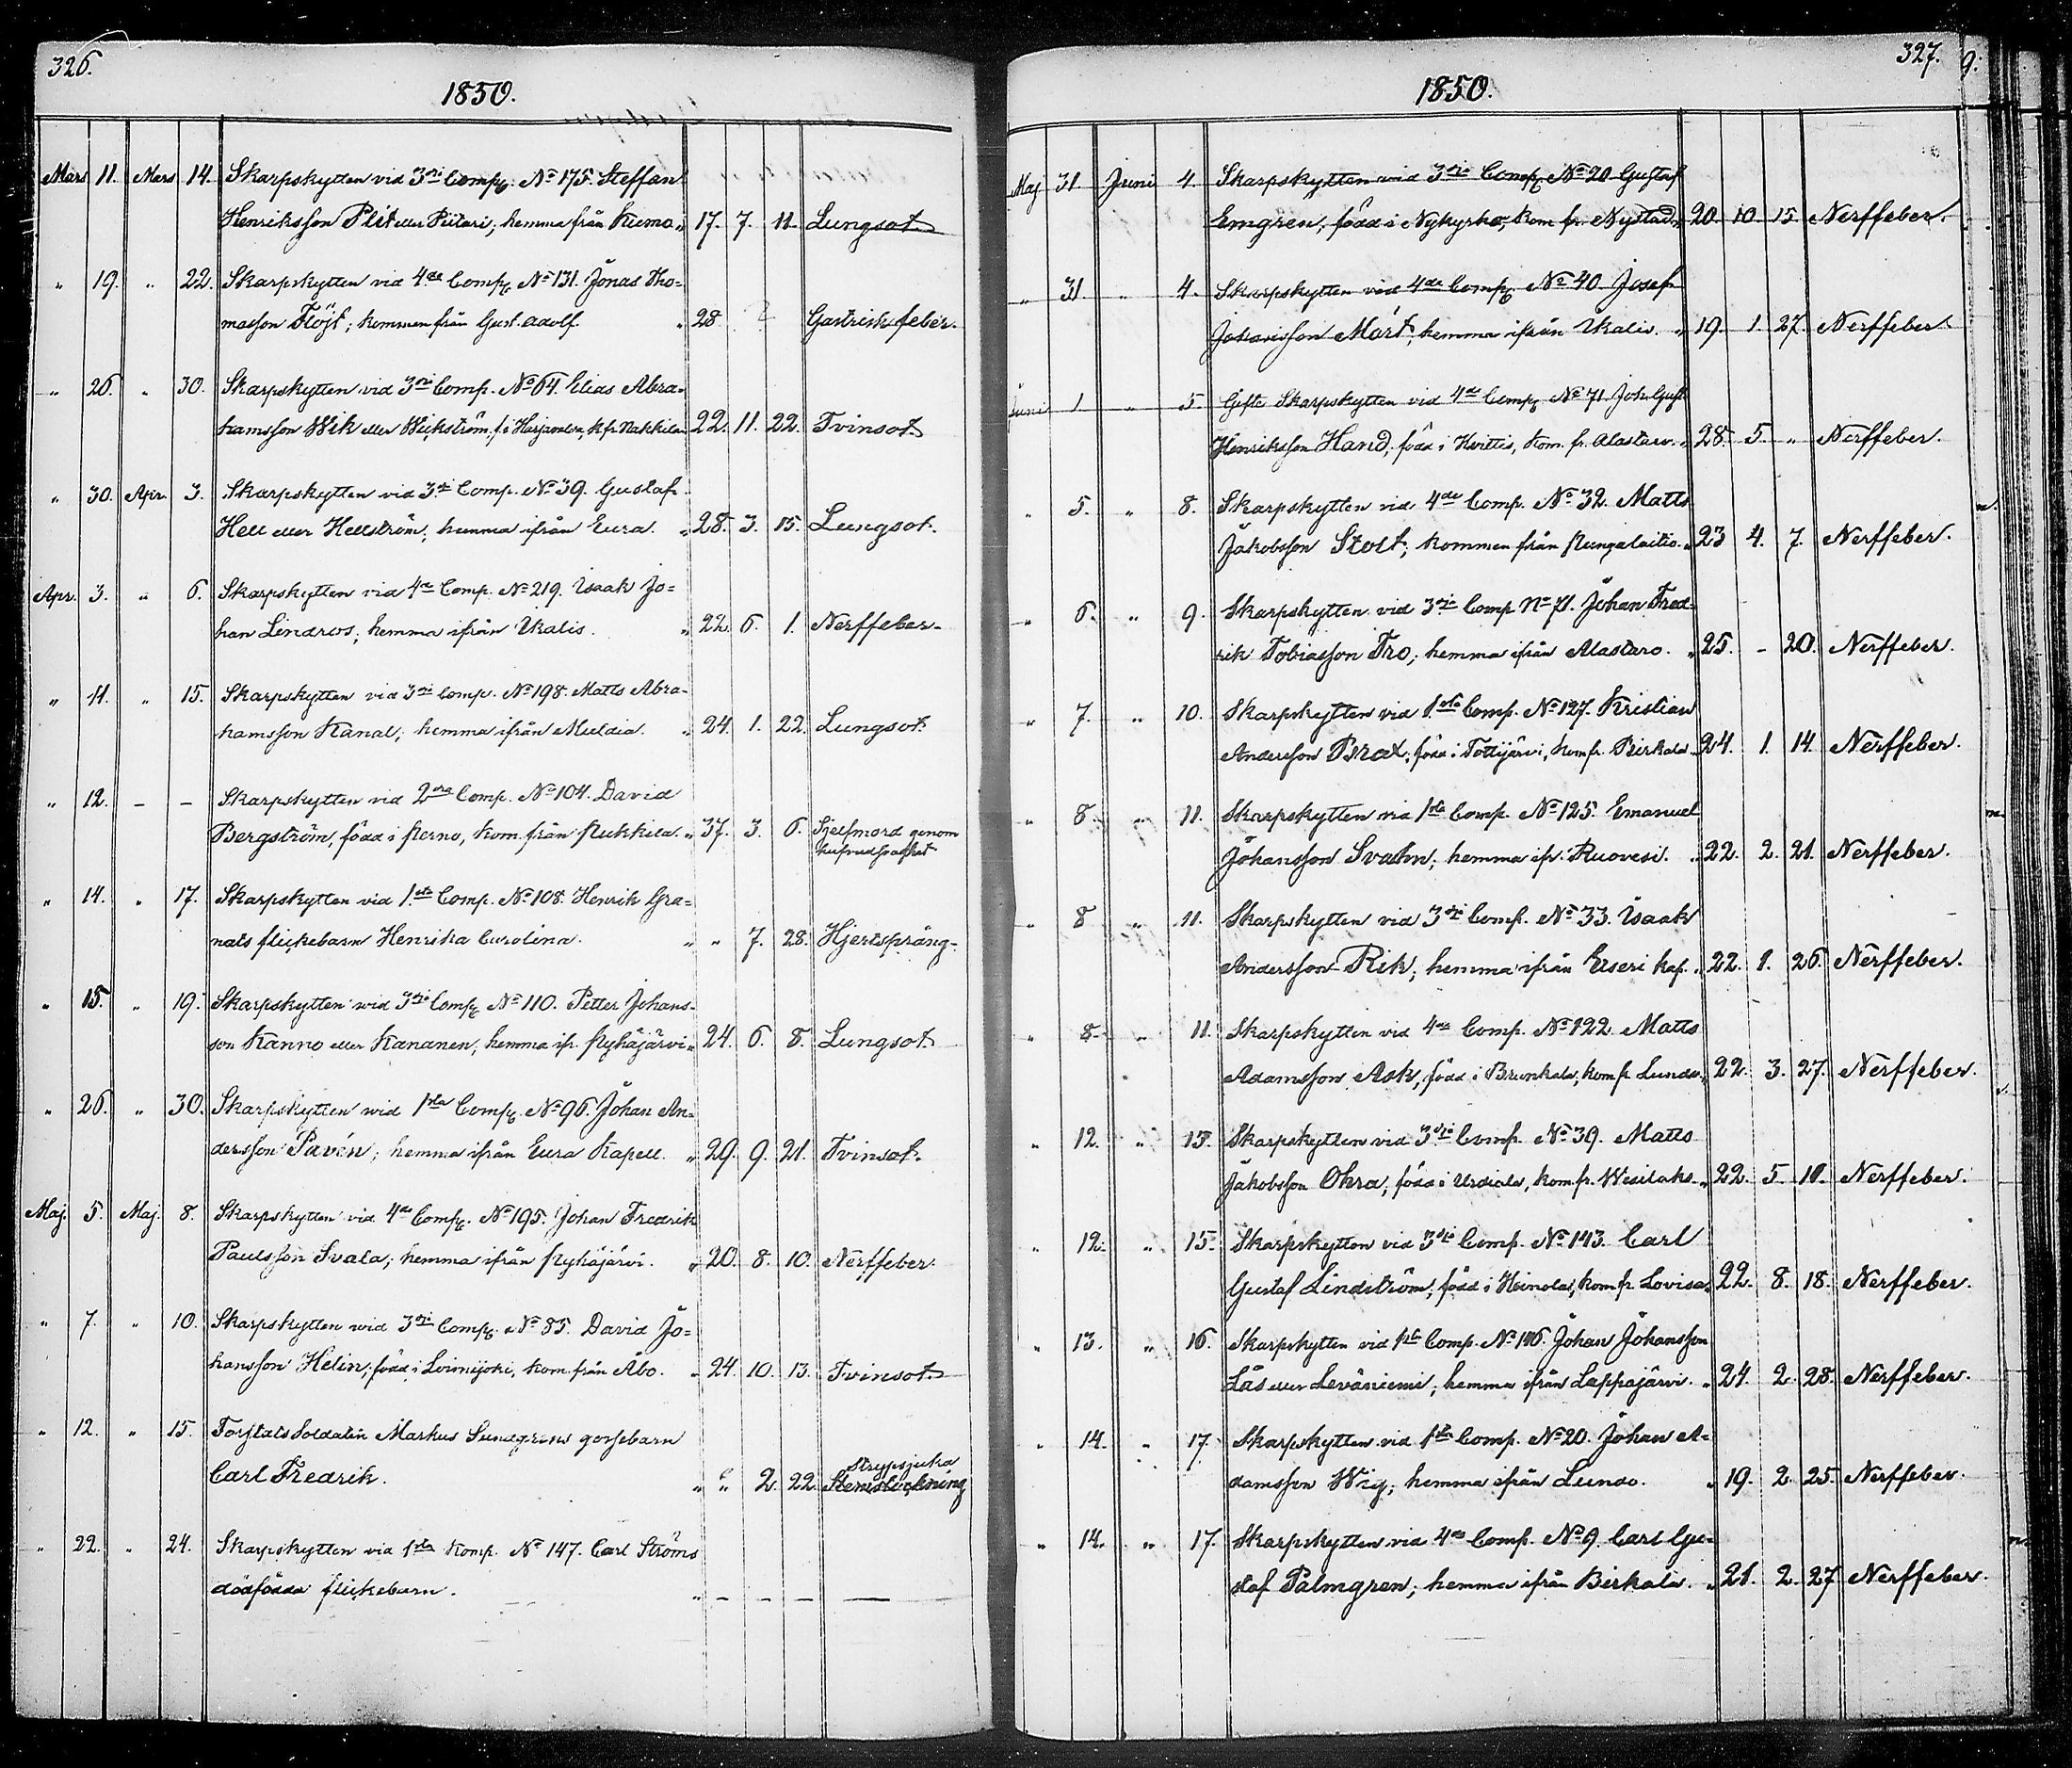 326.
1850.
Mars 11. Mars 14. Skarpskytten vid 3dje Comp. No 175. Steffan
Henriksson Plit eller Piitari, hemma från Kiumo „ 17. 7. 11. Lungsot
„ 19. „ 22. Skarpskytten vid 4de Comp. No 131. Jonas Tho=
masson Flöjt; kommen från Gust. Adolf. „ 28 ? Gastrisk feber.
„ 26. „ 30. Skarpskytten vid 3dje Comp. No 64. Elias Abra=
hamsson Wik eller Wickström, f. i Harjavalta, k. fr. Nakkila 22. 11. 22. Tvinsot
„ 30. Apr. 3. Skarpskytten vid 3dje Comp. No 39. Gustaf
Hell eller Hellström; hemma ifrån Eura. „ 28. 3. 15. Lungsot.
Apr. 3. „ 6. Skarpskytten vid 4de Comp. No 219. Isaak Jo=
han Lindroos; hemma ifrån Ikalis. „ 22. 6. 1. Nerffeber.
„ 11. „ 15. Skarpskytten vid 3dje Comp. No 198. Matts Abra-
hamsson Kanal; hemma ifrån Muldia. „ 24. 1. 22. Lungsot.
„ 12. – – Skarpskytten vid 2dra Comp. No 104. David
Bergström, född i Perno, kom. från Pukkila. „ 37. 3. 6. Sjelfmord genom
hufvudsvaghet
„ 14. „ 17. Skarpskytten vid 1sta Comp. No 108. Henrik Gra=
nats flickebarn Henrika Carolina. „ „ 7. 28. Hjertspräng.
„ 15. „ 19. Skarpskytten vid 3dje Comp. No 110. Petter Johans-
son Kanno eller Kananen, hemma ifr. Pyhäjärvi „ 24. 6. 8. Lungsot.
„ 26. „ 30. Skarpskytten vid 1sta Comp. No 96. Johan An=
dersson Pavén; hemma ifrån Eura Kapell. „ 29. 9. 21. Tvinsot.
Maj. 5. Maj. 8. Skarpskytten vid 4de Comp. No 195. Johan Fredrik
Paulsson Svala; hemma ifrån Pyhäjärvi. „ 20. 8. 10. Nerffeber.
„ 7. „ 10. Skarpskytten vid 3dje Comp. No 85. David Jo=
hansson Helin; född i Loimijoki, kom. från Åbo. „ 24. 10. 13. Tvinsot
„ 12. „ 15. Forstats Soldaten Markus Sundgrens gossebarn
Strypsjuka
Carl Fredrik. „ „ 2. 22. Stenstockning
„ 22. „ 24. Skarpskytten vid 1sta Komp. No 147. Carl Ströms
dödfödda flickebarn. „ – – – –
327. 9.
1850.
Maj 31. Juni 4. Skarpskytten vid 3dje Comp. No 20 Gustaf
Emgren, född i Nykyrko, kom fr. Nystad. „ 20. 10. 15. Nerffeber.
„ 31. „ 4. Skarpskytten vid 4de Comp. No 40. Josef
Johansson Mört; hemma ifrån Ikalis. „ 19. 1. 27. Nerffeber.
Juni 1 „ 5. Gifte Skarpskytten vid 4de Comp. No 71 Joh. Gust.
Henriksson Hand, född i Hvittis, kom. fr. Alastaro. „ 28. 5. „ Nerffeber.
„ 5. „ 8. Skarpskytten vid 4de Comp. No 32. Matts
Jakobsson Stolt; kommen från Pungalaitio. „ 23 4. 7. Nerffeber.
„ 6. „ 9. Skarpskytten vid 3dje Comp No 71. Johan Fred-
rik Tobiasson Tro; hemma ifrån Alastaro. „ 25. – 20. Nerffeber.
„ 7. „ 10. Skarpskytten vid 1sta Comp. No 127. Kristian
Andersson Prat; född i Tottijärvi, kom fr. Birkala „ 24. 1. 14. Nerffeber.
„ 8. „ 11. Skarpskytten vid 1sta Comp. No 125. Emanuel
Johansson Svahn; hemma ifr. Ruovesi. „ 22. 2. 21. Nerffeber.
„ 8 „ 11. Skarpskytten vid 3dje Comp. No 33. Isaak
Andersson Rik; hemma ifrån Eura kap. „ 22. 1. 26. Nerffeber.
„ 8. „ 11. Skarpskytten vid 4de Comp. No 122. Matts
Adamsson Ask, född i Brunkala, kom fr. Lundo „ 22. 3. 27. Nerffeber.
„ 12. „ 15. Skarpskytten vid 3dje Comp. No 39. Matts
Jakobsson Ohra; född i Urdiala, kom. fr. Wesilaks. „ 22. 5. 10. Nerffeber.
„ 12. „ 15. Skarpskytten vid 3dje Comp. No 143. Carl
Gustaf Lindström, född i Heinola, kom fr Lovisa „ 22. 8. 18. Nerffeber.
„ 13. „ 16. Skarpskytten vid 1sta Comp. No 116. Johan Johansson
Lås eller Leväniemi; hemma ifrån Lappajärvi. „ 24. 2. 28. Nerffeber.
„ 14. „ 17. Skarpskytten vid 1sta Comp. No 20. Johan A=
damsson Wig; hemma ifrån Lundo. „ 19. 2. 25. Nerffeber.
„ 14. „ 17. Skarpskytten vid 4de Comp. No 9. Carl Gu-
staf Palmgren; hemma ifrån Birkala. „ 21. 2. 27 Nerffeber.